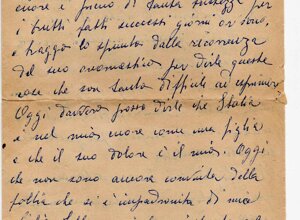 cuore è pieno di tanta tristezza per
i brutti fatti successi giorni or sono,
e traggo lo spunto dalla ricorrenza
del suo onomastico per dirle queste
cose che son tanto difficili ad esprimer
Oggi davvero posso dirle che Italia
è nel mio cuore come una figlia
e che il suo dolore è il mio. Oggi
che non sono ancora convinta della
follia che si è impadronita di mio